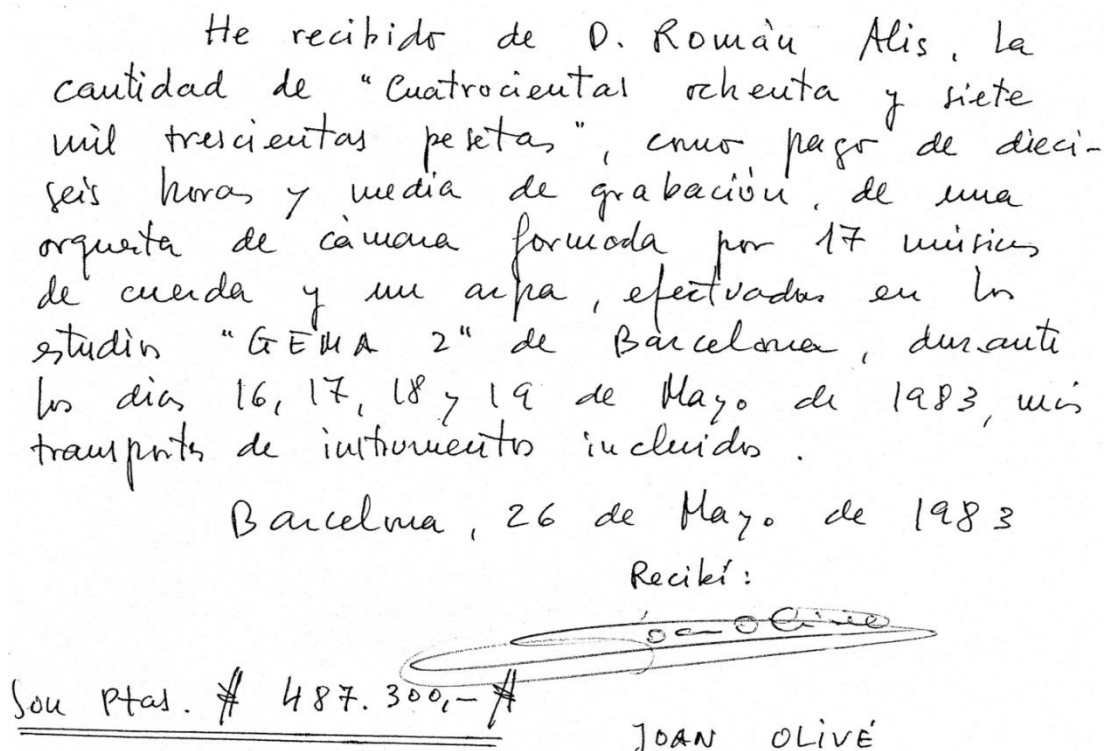 He recibido de D. Román Alis, la
cantidad de "Cuatrocientas ochenta y siete
mil trescientas pesetas", como pago de dieci-
seis horas y media de grabación, de una
orquesta de cámara formada por 17 músicos
de cuerda y un arpa, efectuadas en los
estudios "GEMA 2" de Barcelona, durante
los dias 16, 17, 18 y 19 de Mayo de 1983, más
transportes de instrumentos incluidos.
Barcelona, 26 de Mayo de 1983
Recibí:
Joan Olivé
Son Ptas. # 487.300,- #
JOAN OLIVÉ